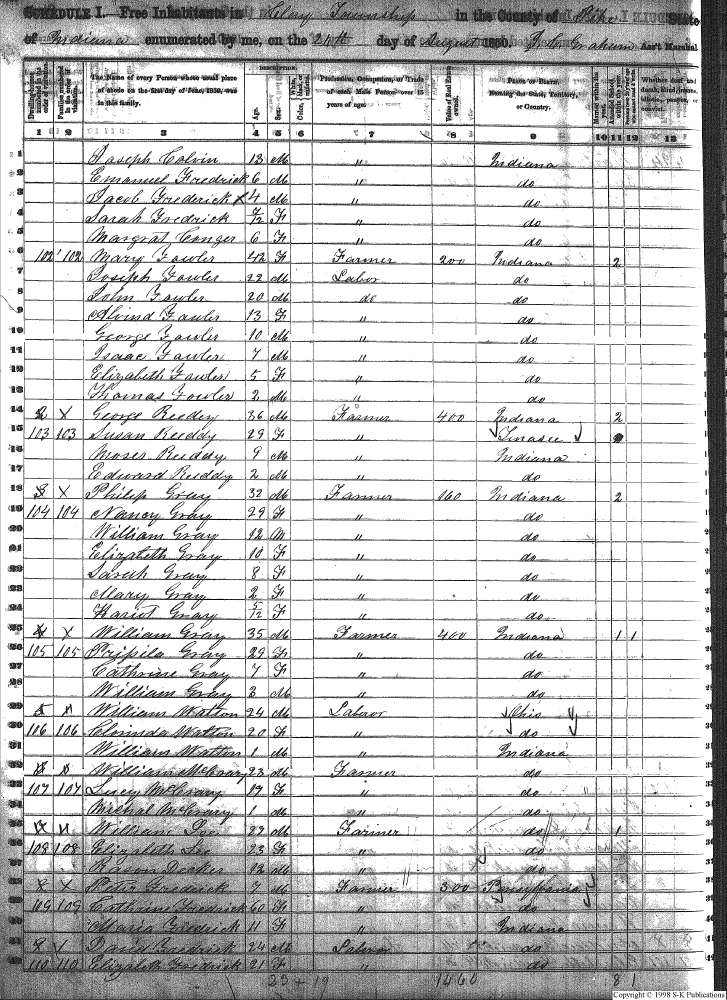 SCHEDULE I. Free Inhabitants in Clay Township in the County of Pike State
of Indiana enumerated by me, on the 24th day of August 1850. Graham Ass't Marshal
DESCRIPTION.
The Name of every Person whose usual place of abode on the first day of June, 1850, was in this family.
Age.
Sex.
Color,
Profession, Occupation, or Trade of each Male Person over 15 years of age.
Value of Real Estate owned.
PLACE OF BIRTH. Naming the State, Territory, or Country.
1 2 3 4 5 6 7 8 9 10 11 12 13
1 Joseph Colvin 13 M " Indiana
2 Emanuel Fredrick 6 M " do
3 Jacob Frederick X 4 M " do
4 Sarah Fredrick 7/12 F " do
5 Margrat Conger 6 F " do
6 102 102 Mary Fowler 42 F Farmer 200 Indiana 2
7 Joseph Fowler 22 M Labor do
8 John Fowler 20 M do do
9 Alvind Fowler 13 F " do
10 George Fowler 10 M " do
11 Isaac Fowler 7 M " do
12 Elizabeth Fowler 5 F " do
13 Thomas Fowler 2 M " do
14 X George Reedey 36 M Farmer 400 Indiana 2
15 103 103 Susan Reeddy 29 F " Tinasee
16 Moser Reeddy 9 M " Indiana
17 Edward Reeddy 2 M " do
18 X Philip Gray 32 M Farmer 160 Indiana 2
19 104 104 Nancy Gray 29 F " do
William Gray 12 M " do
21 Elizabeth Gray 10 F " do
22 Sarah Gray 8 F " do
23 Mary Gray 2 F " do
24 Hariot Gray 5/12 F " do
25 X William Gray 35 M Farmer 400 Indiana 1 1
26 105 105 Pripila Gray 29 F " do
27 Cathrine Gray 7 F " do
28 William Gray 2 M " do
29 William Watton 24 M Laberor Ohio
30 106 106 Clorinda Watton 20 F " do
31 William Watton 1 M " Indiana
William McCrary 23 M Farmer do
107 107 Lucy McCrary 19 F " do
Michal McCrary 1 M " do
William Lee 22 M Farmer do 1
108 108 Elizabeth Lee 23 F " do
Rason Decker 12 M " do
X Peter Fredrick 7 M Farmer 300 Pennsylvania
109 109 Cathrine Fredrick 60 F " do
Maria Fredrick 11 F " Indiana
X David Fredrick 24 M Laberor do
110 110 Elizabeth Fredrick 21 F " do
23 + 19 1460 8 1
Copyright © 1998 S-K Publications